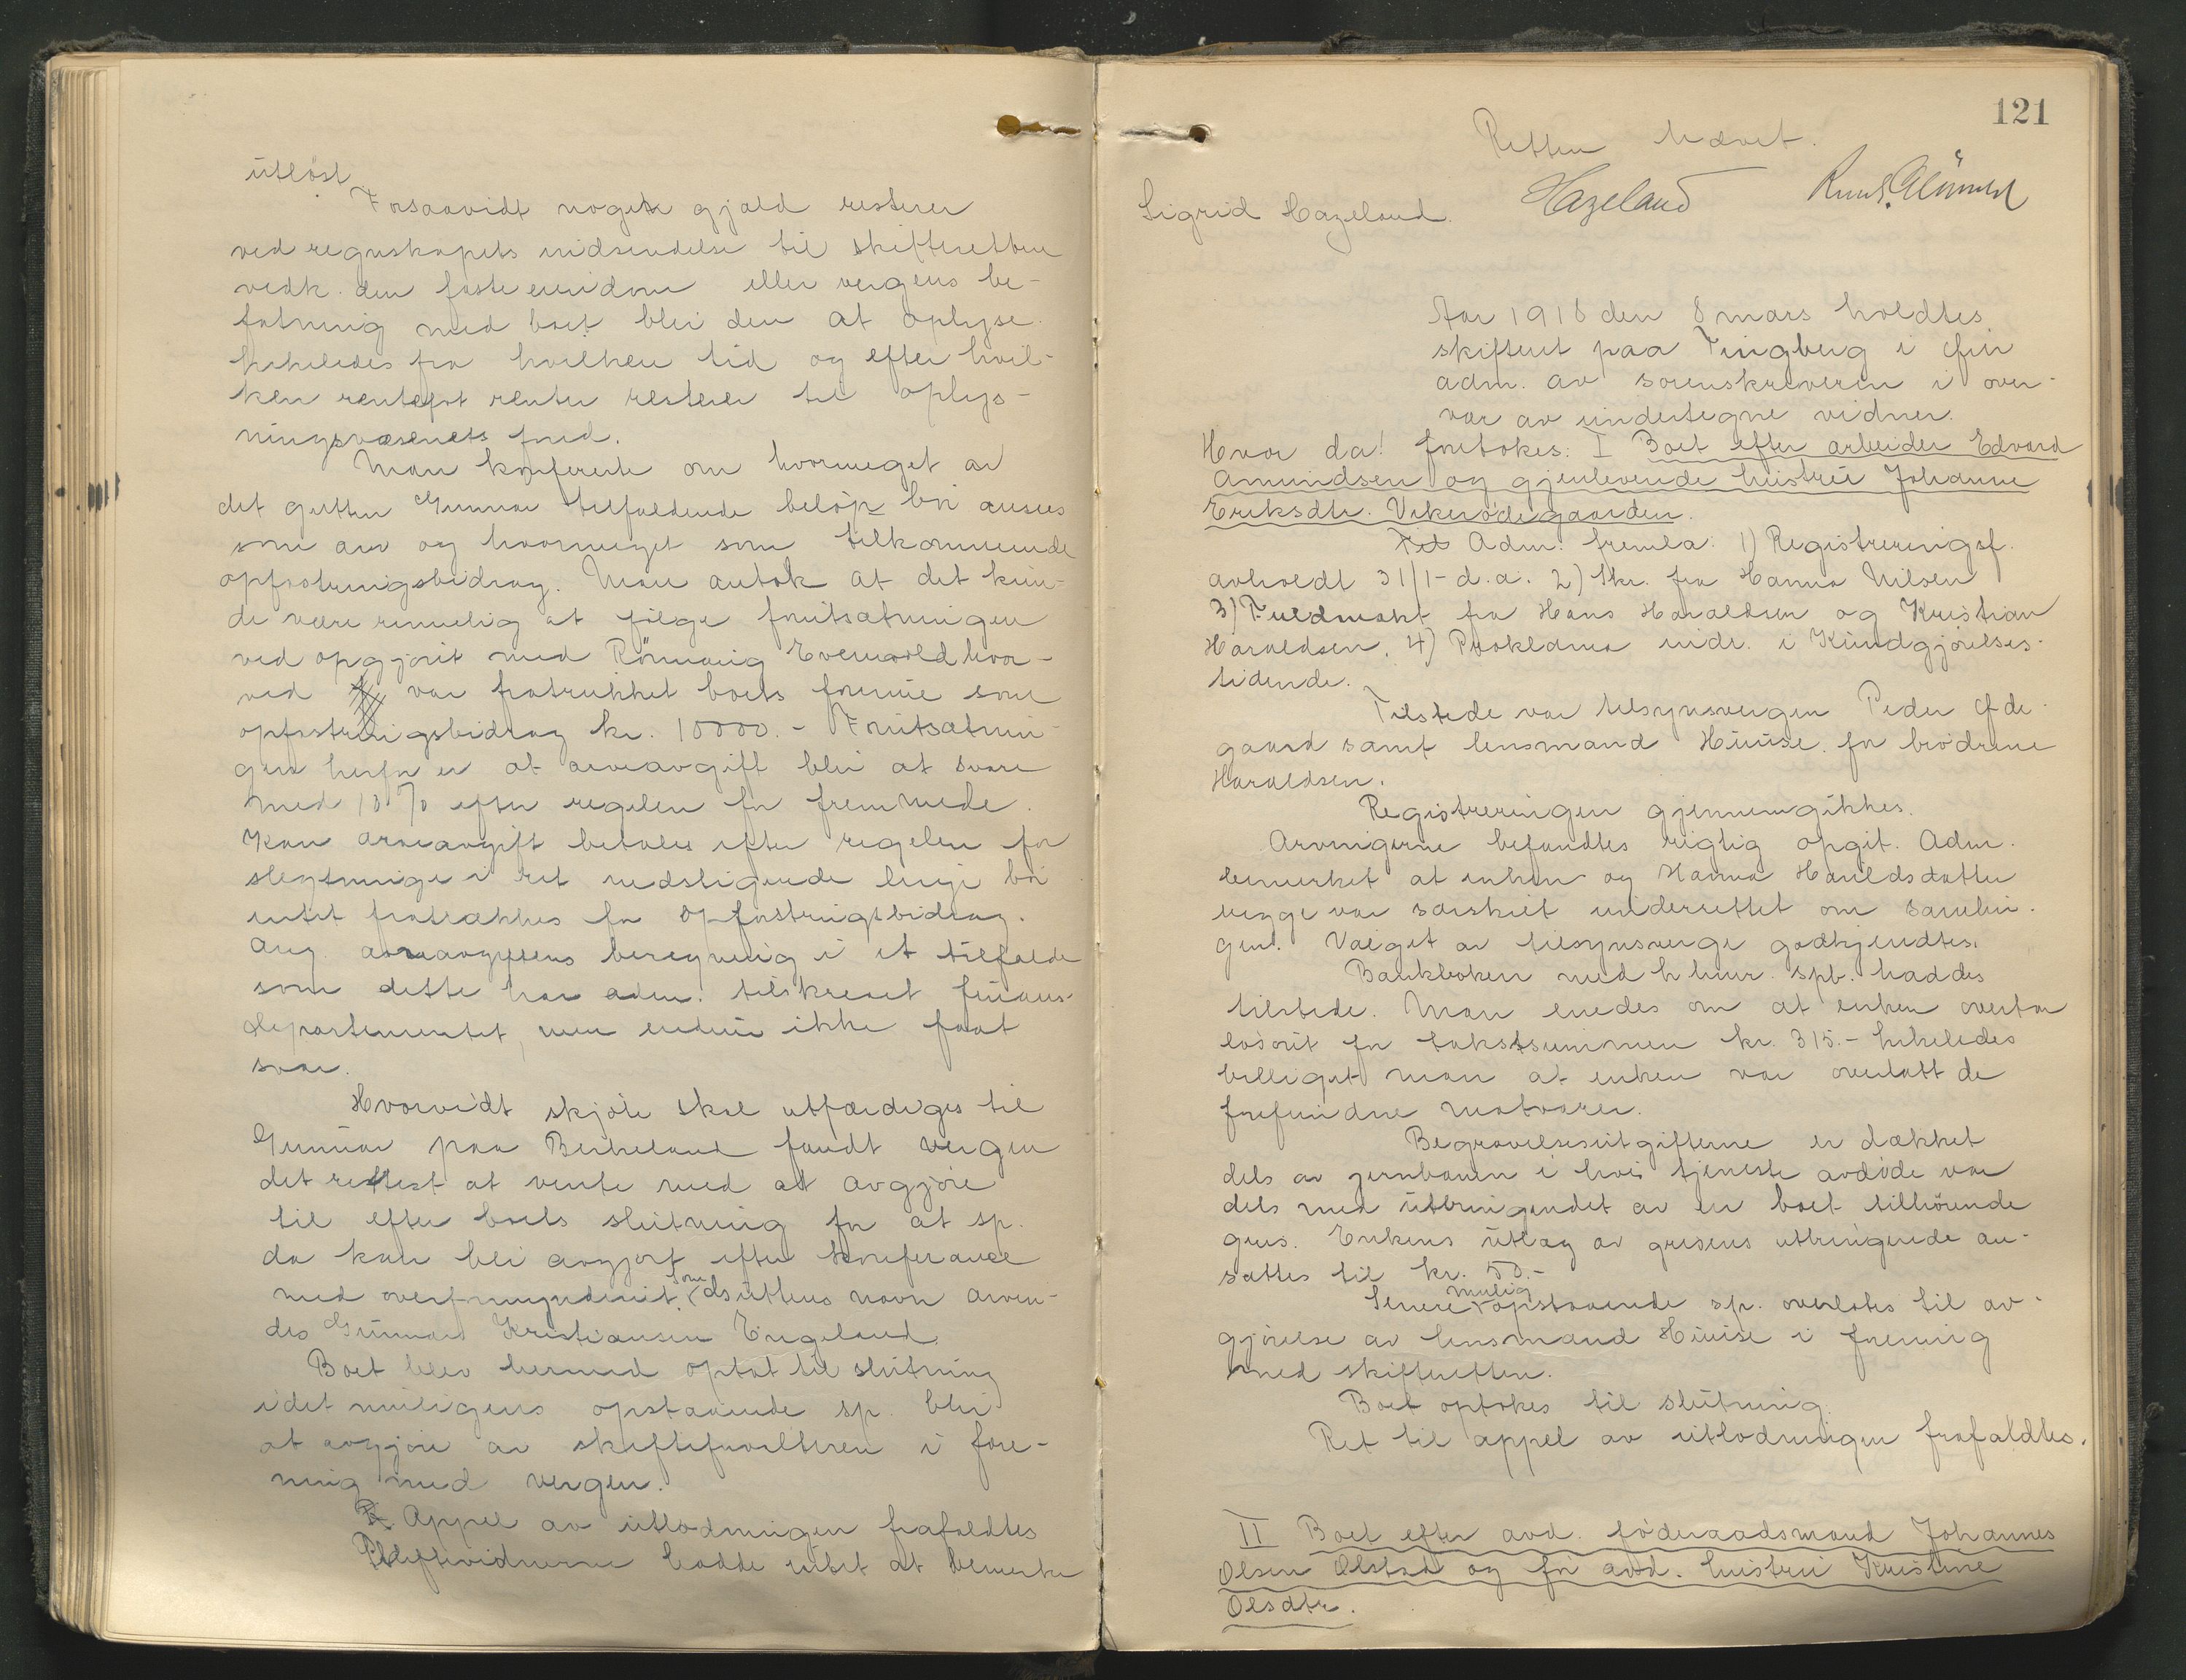 utløst.
Forsaavidt noget gjæld resterer
ved regnskapets indsendelse til skifteretten
vedk. den faste eiendom eller vergens be-
fatning med boet blir den at oplyse
likeledes fra hvilken tid og efter hvil-
ken rentefot renter resterer til oplys-
ningsvæsenets fond.
Man konfererte om hvormeget av
det gutten Gunnar tilfaldende beløp bør ansees
som arv og hvormeget som tilkommende
opfostringsbidrag. Man antok at det kun-
de være rimelig at følge forutsætningen
ved opgjøret med Rønnaug Evenvold hvor-
ved var fratrukket boets formue som
opfostringsbidrag kr. 10000.- Forutsætnin-
gen herfor er at arveavgift blir at svare
med 10 % efter regelen for fremmede.
Kan arveavgift betales efter regelen for
slegtninge i ret nedstigende linje bør
intet fratrækkes for opfostringsbidrag.
Ang. arveavgiftens beregning i et tilfælde
som dette har adm. tilskrevet finans-
departementet, men endnu ikke faat
svar.
Hvorvidt skjøte skal utfærdiges til
Gunnar paa Birkeland fandt vergen
det rettest at vente med at avgjøre
til efter boets slutning for at sp.
da kan bli avgjort efter konferance
med overformynderiet. som
Guttens navn anven-
des Gunnar Kristiansen Engeland.
Boet blev hermed optat til slutning
idet muligens opstaaende sp. blir
at avgjøre av skifteforvalteren i fore-
ning med vergen.
Appel av utlodningen frafaldtes
Skiftevidnerne hadde intet at bemerke
121
Retten hævet.
Sigrid Hazeland. Hazeland Knut
Aar 1918 den 8 mars holdtes
skifteret paa Tingberg i Øier
adm. av sorenskriveren i over-
vær av undertegne vidner.
Hvor da! foretokes: I Boet efter arbeider Edvard
Amundsen og gjenlevende hustru Johanne
Eriksdtr. Vikerødegaarden.
Adm. fremla: 1) Registreringsf.
avholdt 31/1- d.a. 2) Skr. fra Hanna Nilsen
3) Fuldmakt fra Hans Haraldsen og Kristian
Haraldsen. 4) Proklama indr. i Kundgjørelses-
tidende.
Tilstede var tilsynsvergen Peder Øde-
gaard samt lensmand Huuse for brødrene
Haraldsen.
Registreringen gjennemgikkes.
Arvingerne befandtes rigtig opgit. Adm.
bemerket at enken og Hanna Haraldsdatter
begge var særskilt underrettet om samlin-
gen. Valget av tilsynsverge godkjendtes.
Bankboken med Lhmr. spb. haddes
tilstede. Man enedes om at enken overtar
løsøret for takstsummen kr. 315.- likeledes
billiget man at enken var overlatt de
forefundne matvarer.
Begravelsesutgifterne er dækket
dels av jernbanen i hvis tjeneste avdøde var
dels med utbringendet av en boet tilhørende
gris. Enkens utlæg av grisens utbringende an-
sattes til kr. 50.-
mulig
Senere opstaaende sp. overlates til av-
gjørelse av lensmand Huuse i forening
med skifteretten.
Boet optokes til slutning.
Ret til appel av utlodningen frafaldtes.
II Boet efter avd. føderaadsmand Johannes
Olsen Ølstad og før avd. hustru Kristine
Olsdtr.